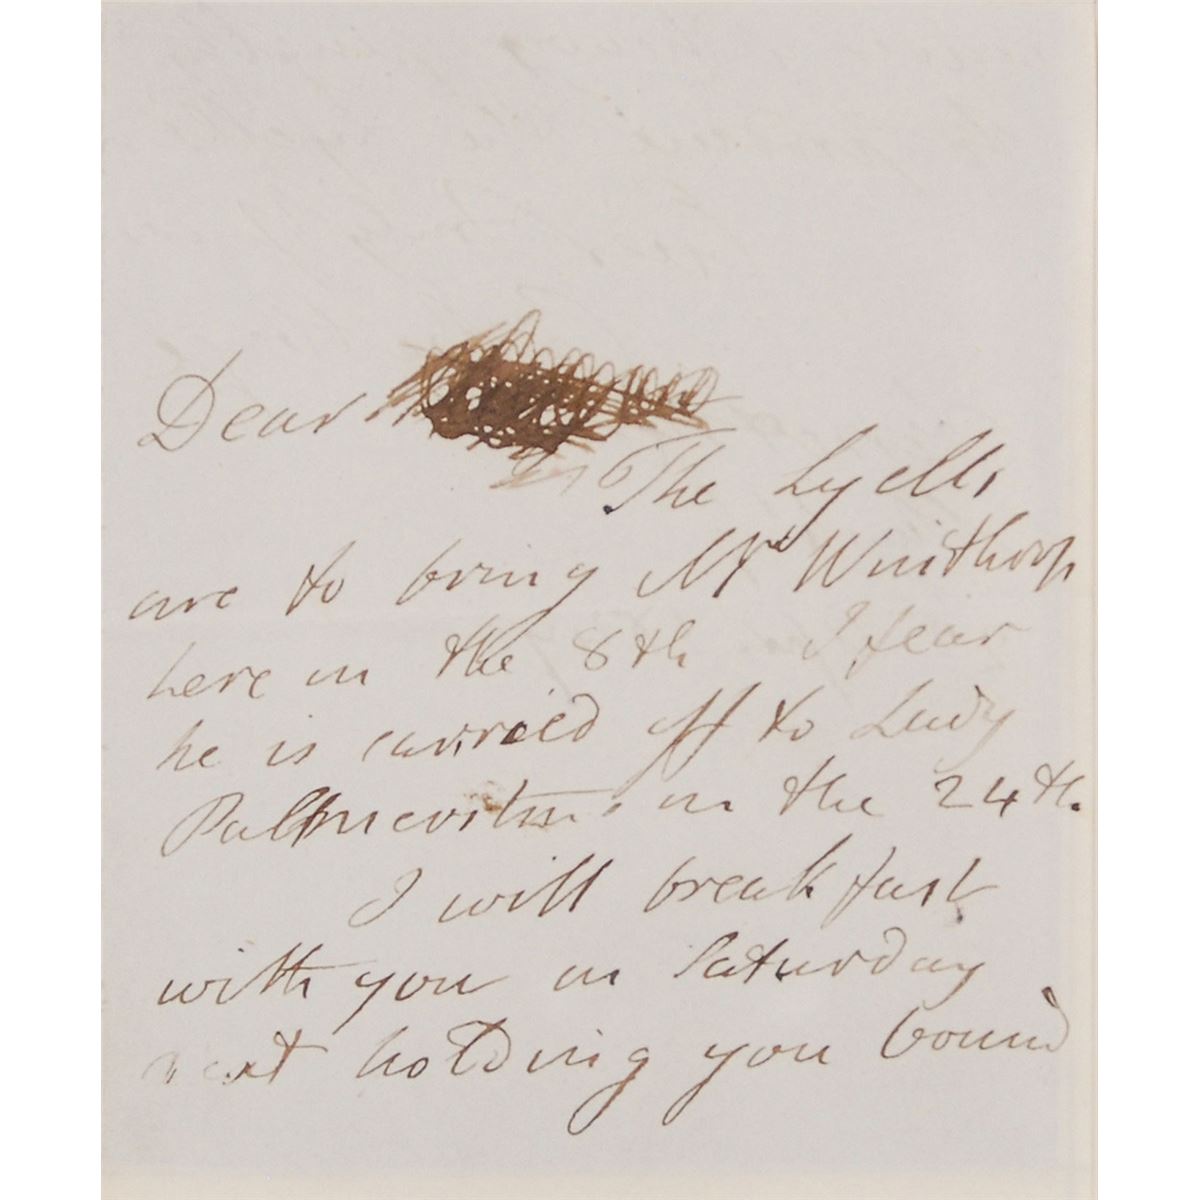 Dear
The Lyells
are to bring Mr Winthrop
here on the 8th I fear
he is carried off to Lady
Palmerston's on the 24th.
I will breakfast
with you on Saturday
next holding you bound